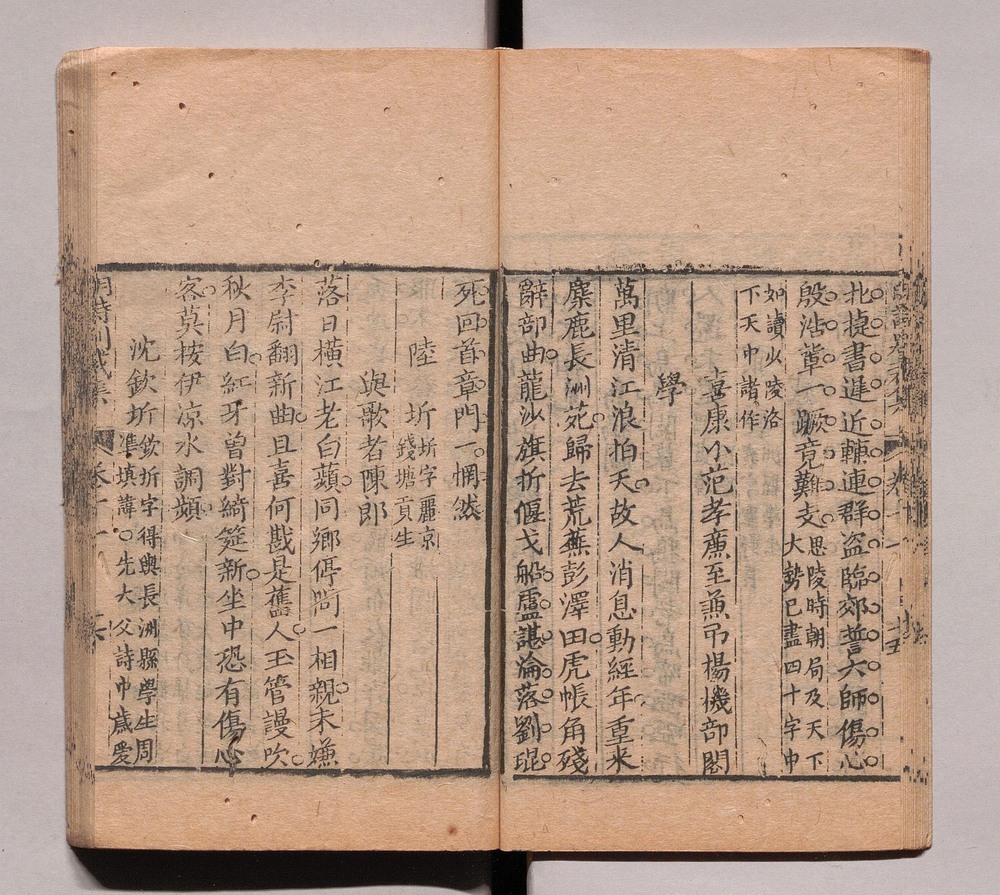 北捷書遲近連群盜臨郊誓大師傷心
殷浩輩一蹶竟難支
思陵時朝局及天下
大勢已盡四十字中
如讀少陵洛
下天中諸作
喜康小范孝廉至兼弔楊機部閣
學
萬里清江浪拍天故人消息動經年重來
麋鹿長洲苑歸去荒蕪彭澤田虎帳角殘
辭部曲龍沙旗折偃戈船盧諶淪落劉琨
死回首章門一惘然
陸圻
圻字麗京
錢塘貢生
與歌者陳郎
落日橫江老白蘋同鄉停舸一相親未嫌
李尉翻新曲且喜何戡是舊人玉管謾吹
秋月白紅牙曾對綺筵新坐中恐有傷心
客莫按伊凉水調頻
沈欽圻
欽圻字得輿長洲縣學生周
準填諱○先大父詩巾歲愛
明詩別裁集 卷十一